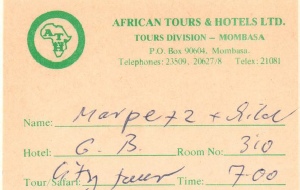 ATH
AFRICAN TOURS & HOTELS LTD.
TOURS DIVISION – MOMBASA
P.O. Box 90604, Mombasa.
Telephones: 23509, 20627/8 Telex: 21081
Name: Marpetz +
Hotel: G. B. Room No: 310
Tour/Safari: City tour Time: 7.00